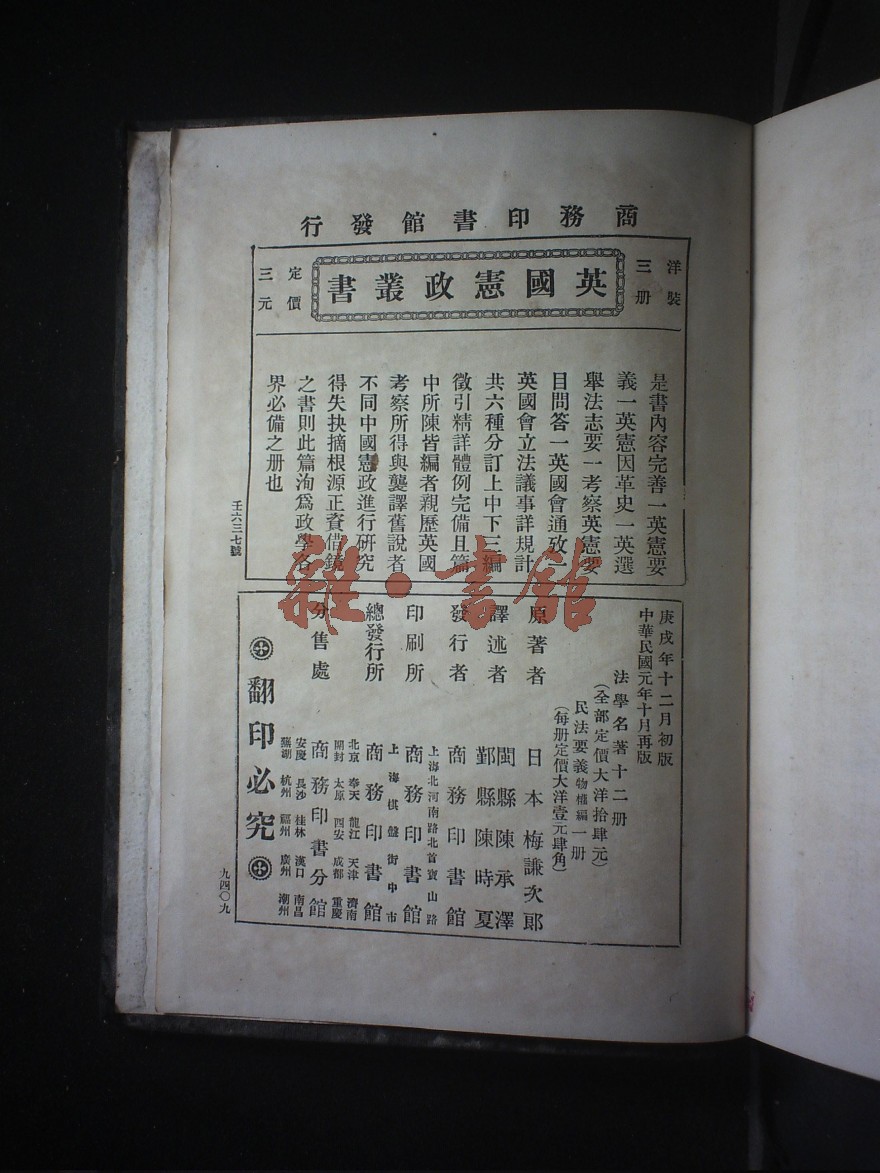 商務印書館發行
洋裝
三册
英國憲政叢書
定價
三元
是書內容完善一英憲要
義一英憲因革史一英選
舉法志要一考察英憲要
目問答一英國會通攷一
英國會立法議事詳規計
共六種分訂上中下三編
徵引精詳體例完備且篇
中所陳皆編者親歷英國
考察所得與襲譯舊說者
不同中國憲政進行研究
得失抉摘根源正資借鏡
之書則此篇洵爲政學各
界必備之册也
壬六三七號
庚戌年十二月初版
中華民國元年十月再版
法學名著十二册
(全部定價大洋拾肆元)
民法要義物權編一册
(每册定價大洋壹元肆角)
原著者 日本梅謙次郎
譯述者 閩縣陳承澤 鄞縣陳時夏
發行者 商務印書館
上海北河南路北首寶山路
印刷所 商務印書館
上海棋盤街中市
總發行所 商務印書館
北京 奉天 龍江 天津 濟南
開封 太原 西安 成都 重慶
分售處 商務印書分館
安慶 長沙 桂林 漢口 南昌
蕪湖 杭州 福州 廣州 潮州
翻印必究
九四〇九
雜·書館